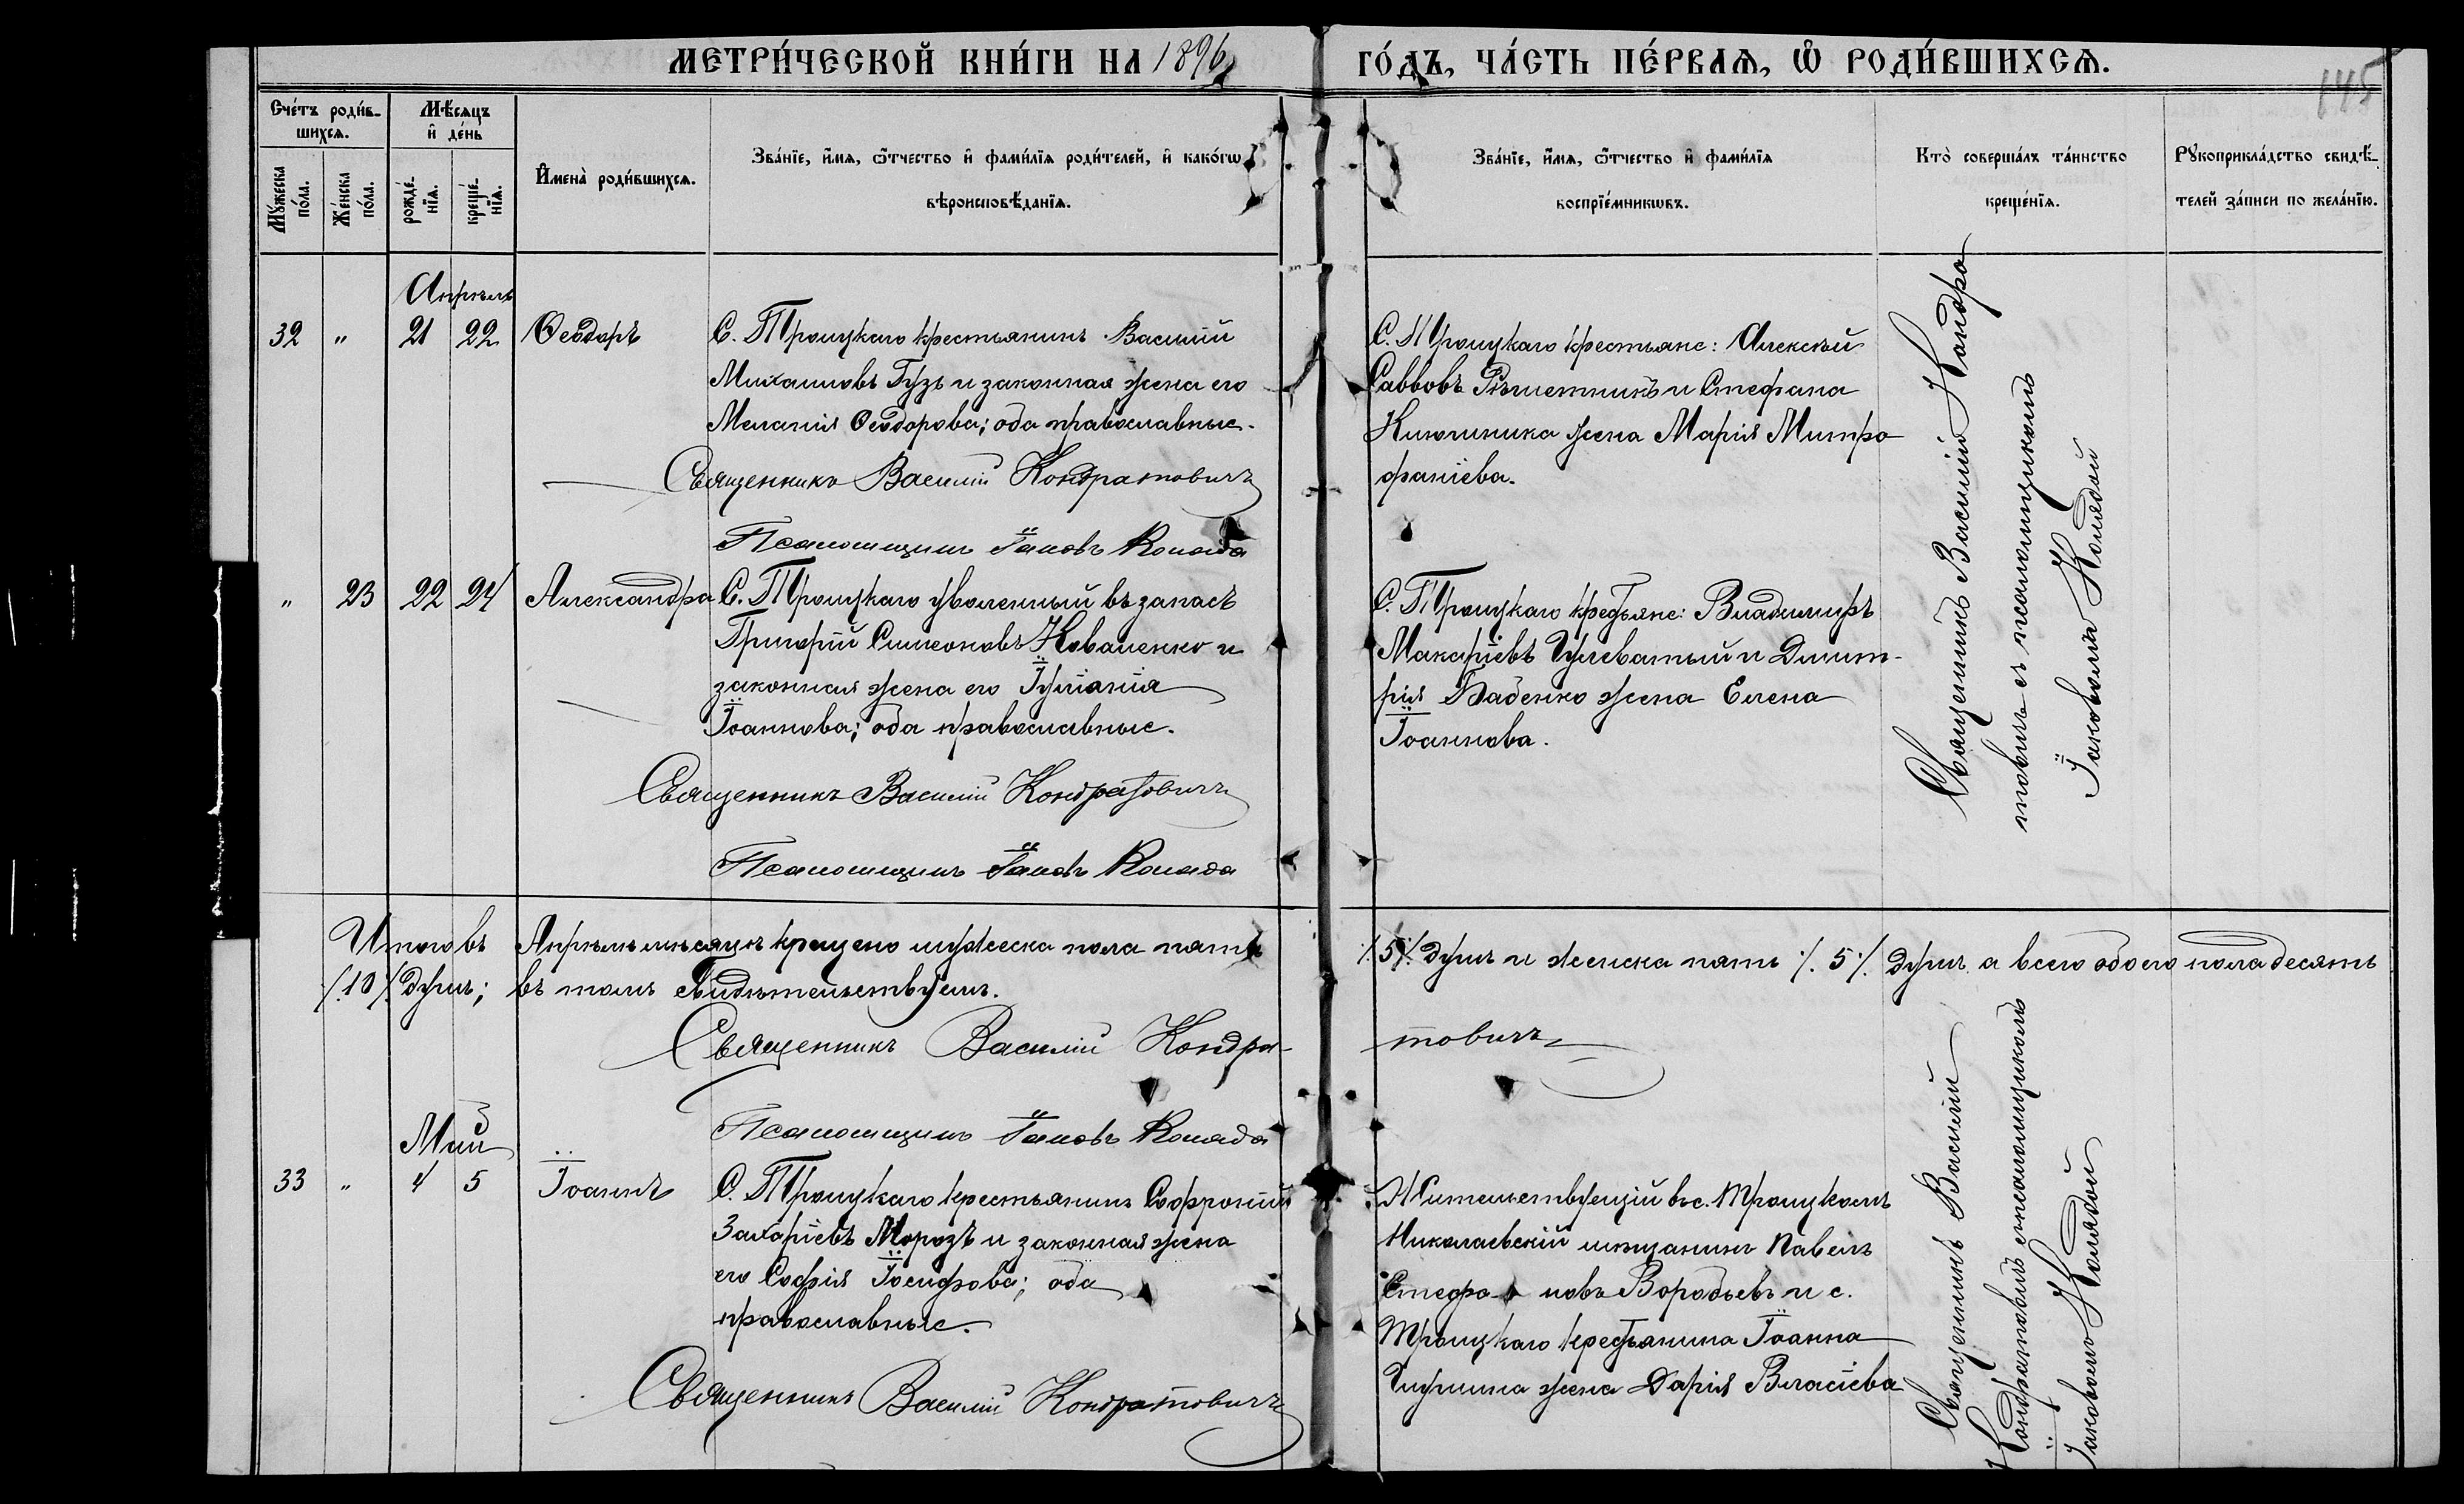 МЕТРИ́ЧЕСКОЙ КНИ́ГИ НА 1896
ГО́ДЪ, ЧА́СТЬ ПЕ́РВАѦ, Ѡ҆ РОДИ́ВШИХСѦ.
145
Сче́тъ роди́в-
шихсѧ.
Мѣ́сѧцъ
и҆ де́нь
Мꙋ́жеска
по́ла.
Же́нска
по́ла.
рожде́-
нїѧ.
креще́-
нїѧ.
И҆мена̀ роди́вшихсѧ.
Зва́нїе, и҆́мѧ, ѻ҆́тчество и҆ фами́лїѧ роди́телей, и҆ како́гѡ
вѣроисповѣ́данїѧ.
Зва́нїе, и҆́мѧ, ѻ҆́тчество и҆ фами́лїѧ
воспрїе́мникѡвъ.
Кто̀ соверша́лъ та́инство
креще́нїѧ.
Рꙋкоприкла́дство свидѣ́-
телей за́писи по жела́нїю.
Апрѣль
32 " 21 22 Ѳеодоръ
С. Троицкаго крестьянинъ Василій
Михаиловъ Гузь и законная жена его
Меланія Ѳеодорова; оба православные.
Священникъ Василій Кондратовичъ
Псаломщикъ Іаковъ Коляда
С. Троицкаго крестьяне: Алексѣй
Саввовъ Рѣшетникъ и Стефана
Ключника жена Марія Митро
фаніева.
Священникъ Василій Кондра
товичъ съ псаломщикомъ
Іаковомъ Колядой
" 23 22 24 Александра
С. Троицкаго уволенный въ запасъ
Григорій Симеоновъ Коваленко и
законная жена его Іуліанія
Іоаннова; оба православные.
Священникъ Василій Кондратовичъ
Псаломщикъ Іаковъ Коляда
С. Троицкаго крестьяне: Владимиръ
Макаріевъ Чулеватый и Димит-
рія Бабенко жена Елена
Іоаннова.
Итого въ Апрѣлѣ мѣсяцѣ крещено мужеска пола пять ./.5./. душъ и женска пять ./. 5 ./. душъ а всего обоего пола десять
/.10/. душъ; въ томъ свидѣтельствуемъ.
Священникъ Василій Кондра-
товичъ
Псаломщикъ Іаковъ Коляда
Май
33 " 4 5 Іоаннъ
С. Троицкаго крестьянинъ Софроній
Захаріевъ Морозъ и законная жена
его Софія Іосифова; оба
православные.
Священникъ Василій Кондратовичъ
Жительствующій въ с. Троицкомъ
Николаевскій мѣщанинъ Павелъ
Стефановъ Воробьевъ и с.
Троицкаго крестьянина Іоанна
жена Дарія Власіева
Священникъ Василій
Кондратовичъ съ псаломщикомъ
Іаковомъ Колядой